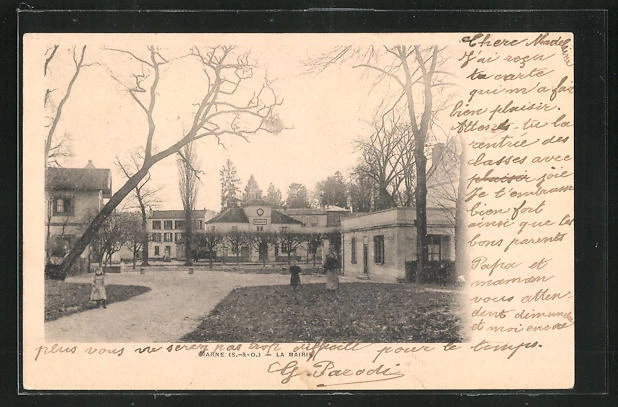 Chère Madeleine
J'ai reçu
ta carte
qui m'a fai
bien plaisir.
Attends-tu la
rentrée des
classes avec
plaisir joie
Je t'embrasse
bien fort
ainsi que les
bons parents
Papa et
maman
vous atten-
dent dimanc
et moi encore
plus vous ne serez pas trop difficult pour le temps.
MARNE (S.-&-O.) — LA MAIRIE
G. Parodi